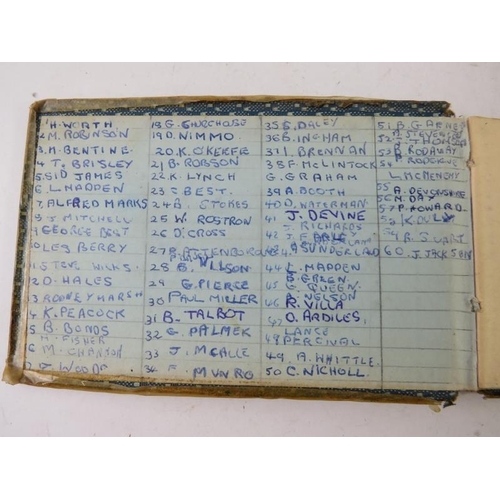 1 H. WORTH
2 M. ROBINSON
3 M. BENTINE.
4 T. BRISLEY
5 SID JAMES
6 L. MADDEN
7 ALFRED MARKS
8 J. MITCHELL
9 GEORGE BEST
10 LES BERRY
11 STEVE WILKS.
12 D. HALES
13 RODNEY MARSH
14 K. PEACOCK
15 B. BONDS
FISHER
M. CHANNON
J. WOOD
18 G. CHURCHOSE
19 D. NIMMO.
20 D. O'KEKEFE
21 B. ROBSON
22 K. LYNCH
23 = BEST.
24 B. STOKES
25 W. ROSTRON
26 D. CROSS
27 R. ATTENBOROUGH
28 B. WILSON.
29 G. PIERCE
30 PAUL MILLER
31 B. TALBOT
32 G. PALMER
33 J. MCALLE
34 MUNRO
35 S. DALEY
36 B. INGHAM
37 L. BRENNAN
38 F. McLINTOCK
G. GRAHAM
39 A. BOOTH
40 D. WATERMAN.
41 J. DEVINE
RICHARDS
42
43 SUNDERLAND
44 L. MADDEN
45 B. GREEN
G. QUEEN
46 NELSON
R. VILLA
47 O. ARDILES.
LANCE
48 PERCIVAL
49. A. WHITTLE.
50 C. NICHOLL.
51 B. GARNER
52 STEVENSON
J. THOMSON
53 RODAWAY
54 P. RODERNE
L. MCMENOMY
55 A. DEVONSHIRE
56 M. DAY
57 P. HOWARD
58
59 R. STUART
60. J. JACKSON